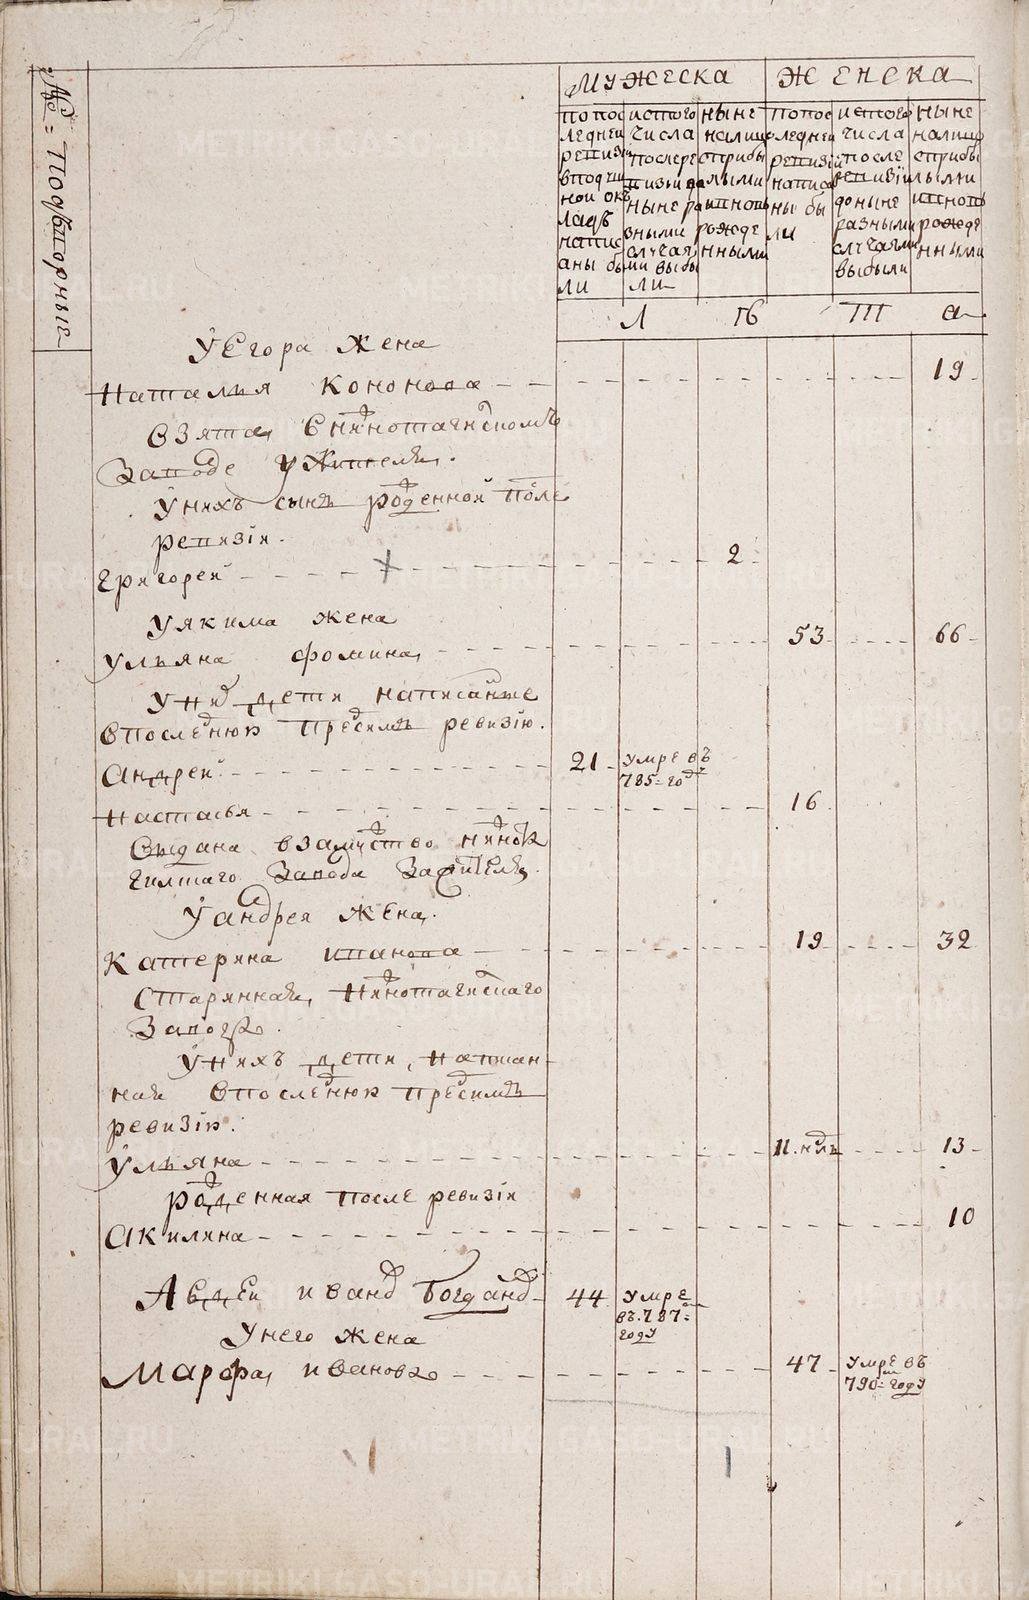 Мужеска Женска
№ = Подворные
попос ледней ревизи вподуш ной окъ ладъ напис аны бы ли
истого числа послере визи до ныне ра зными случая ми выбы ли
ныне налицо сприбы лыми ивновь рожде нными
попос ледней ревизи написа ны бы ли
истого числа после ревизiи доныне разными случаями выбыли
ныне налицо сприбы лыми ивновь рожде нными
Л Ѣ Т а
У Егора жена
Наталья Кононова 19
взята внижнотагилскомъ
Заводе ужителя.
Унихъ сынъ рожденной после
ревизiи.
Григорей 2
Уякима жена
Ульяна фомина 53 66
Уних дети написанные
впоследнюю предсимъ ревизiю.
Андрей 21 умре въ
785 = году
Настасья 16
Выдана взамужство нижнота
гилского завода зажителя.
У андрея жена.
Катерина иванова 19 32
Старинная, Нижнотагилского
Завода.
Унихъ дети, написан
ная впоследнюю предсимъ
ревизiю.
Ульяна 11.нддль 13
рожденная после ревизiи
Акилина 10
Авдей иванов Богданов 44 умре
въ.787=
году
Унего жена
Марфа, иванова 47 умре въ
790 = году